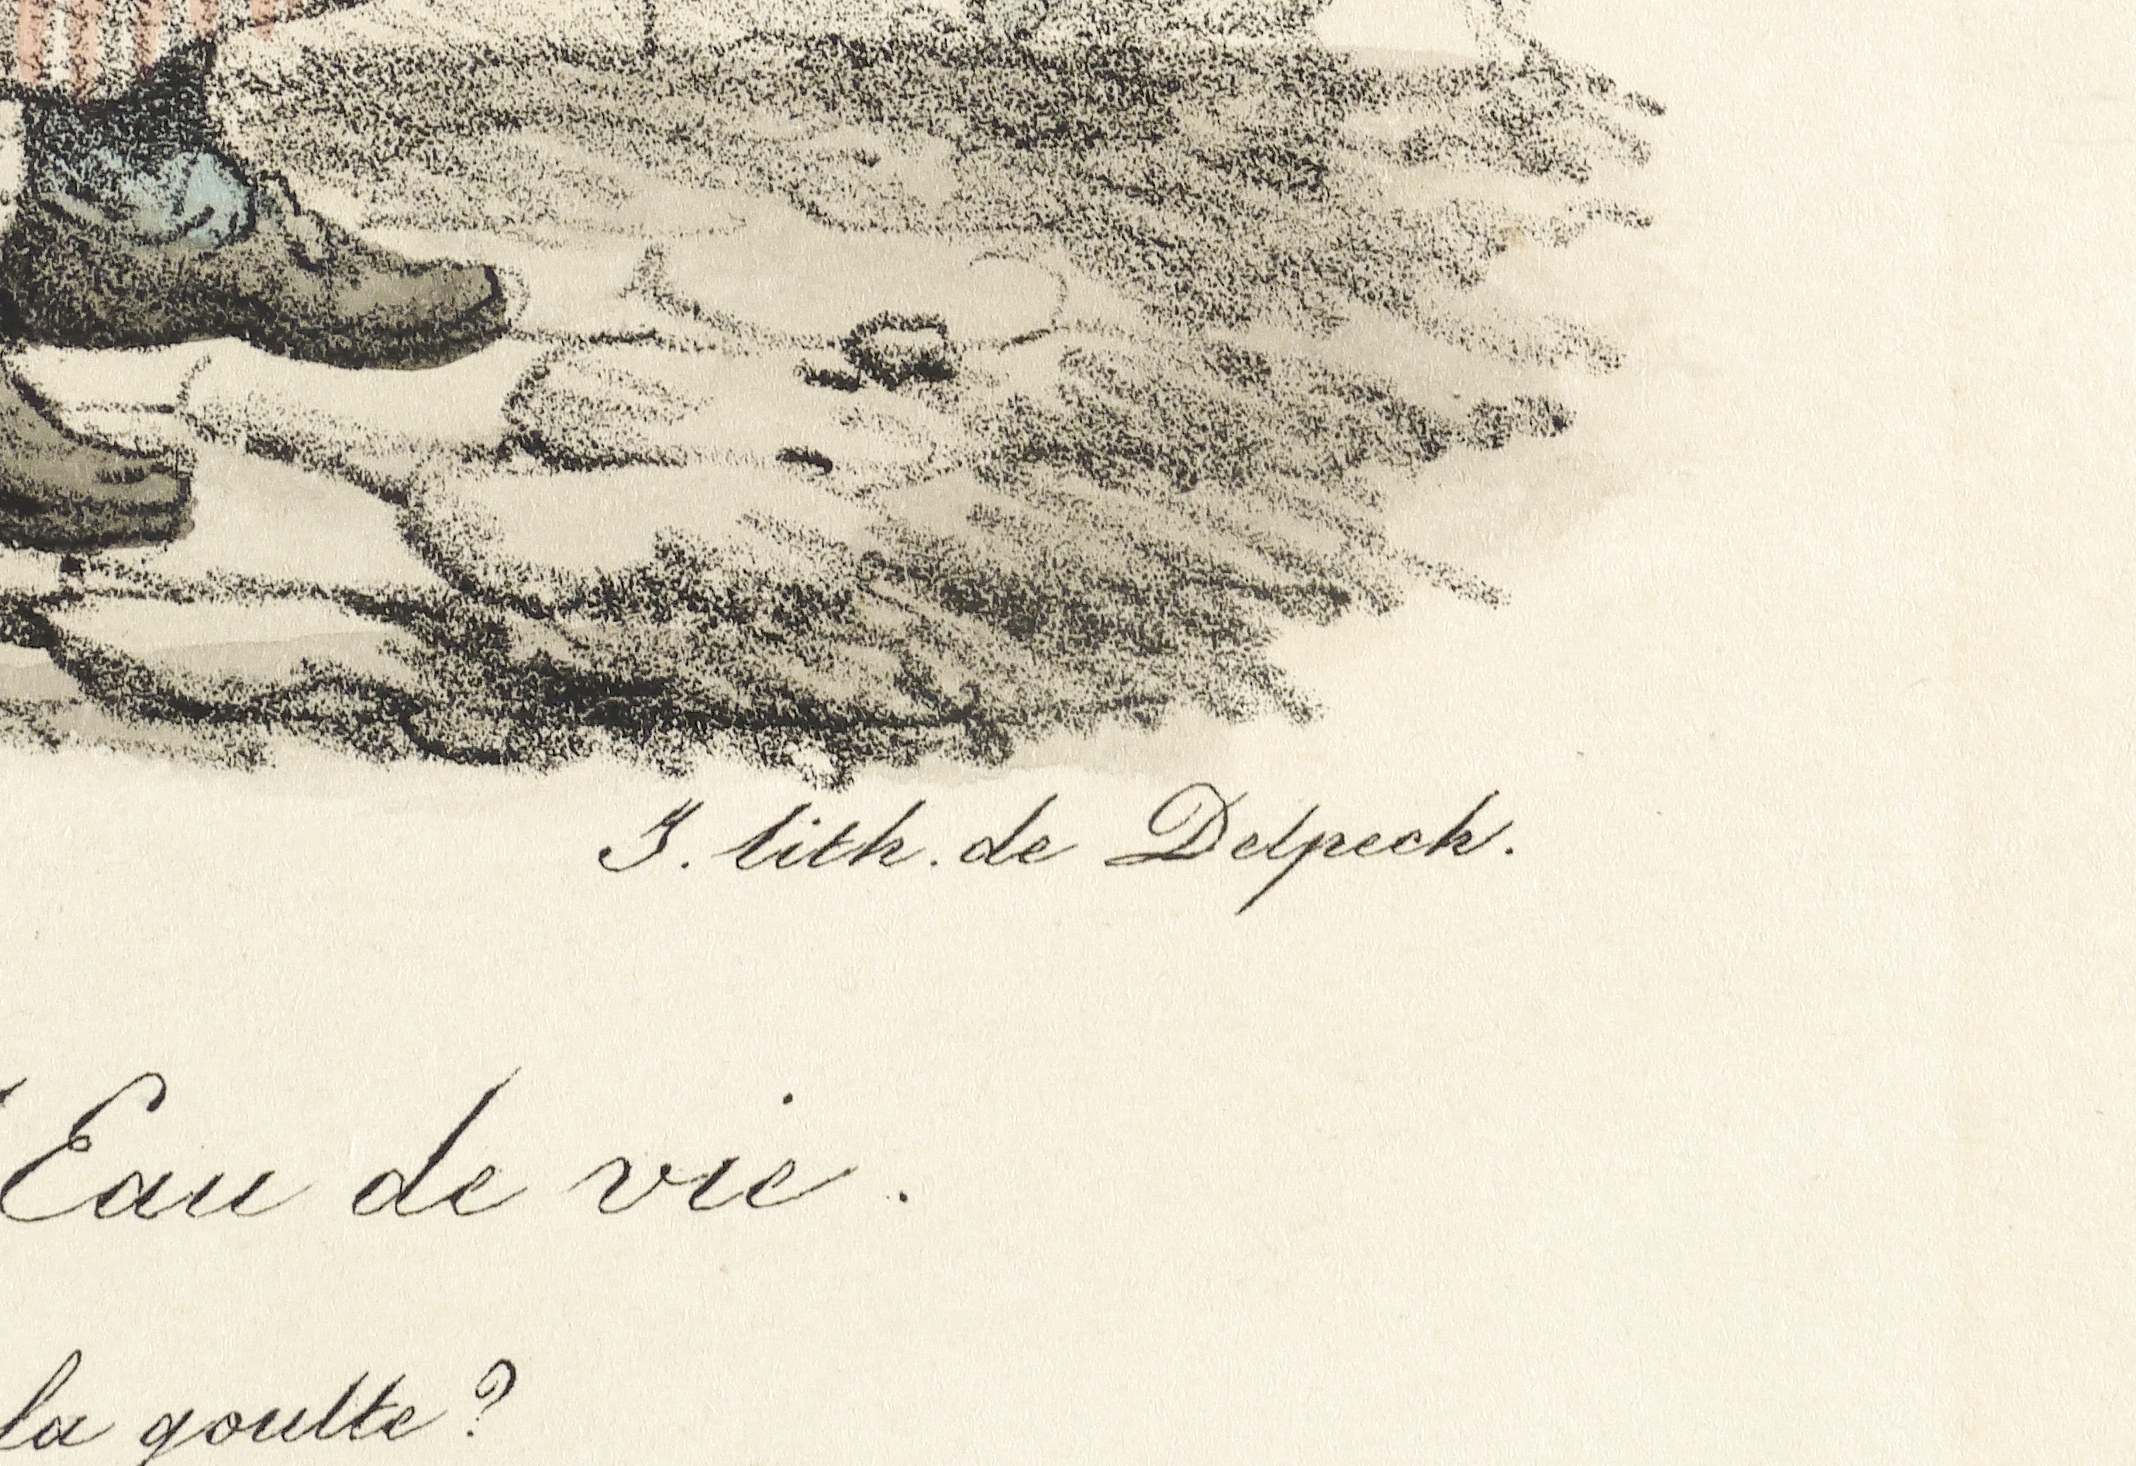 I. lith. de Delpech.
Eau de vie.
la goutte?